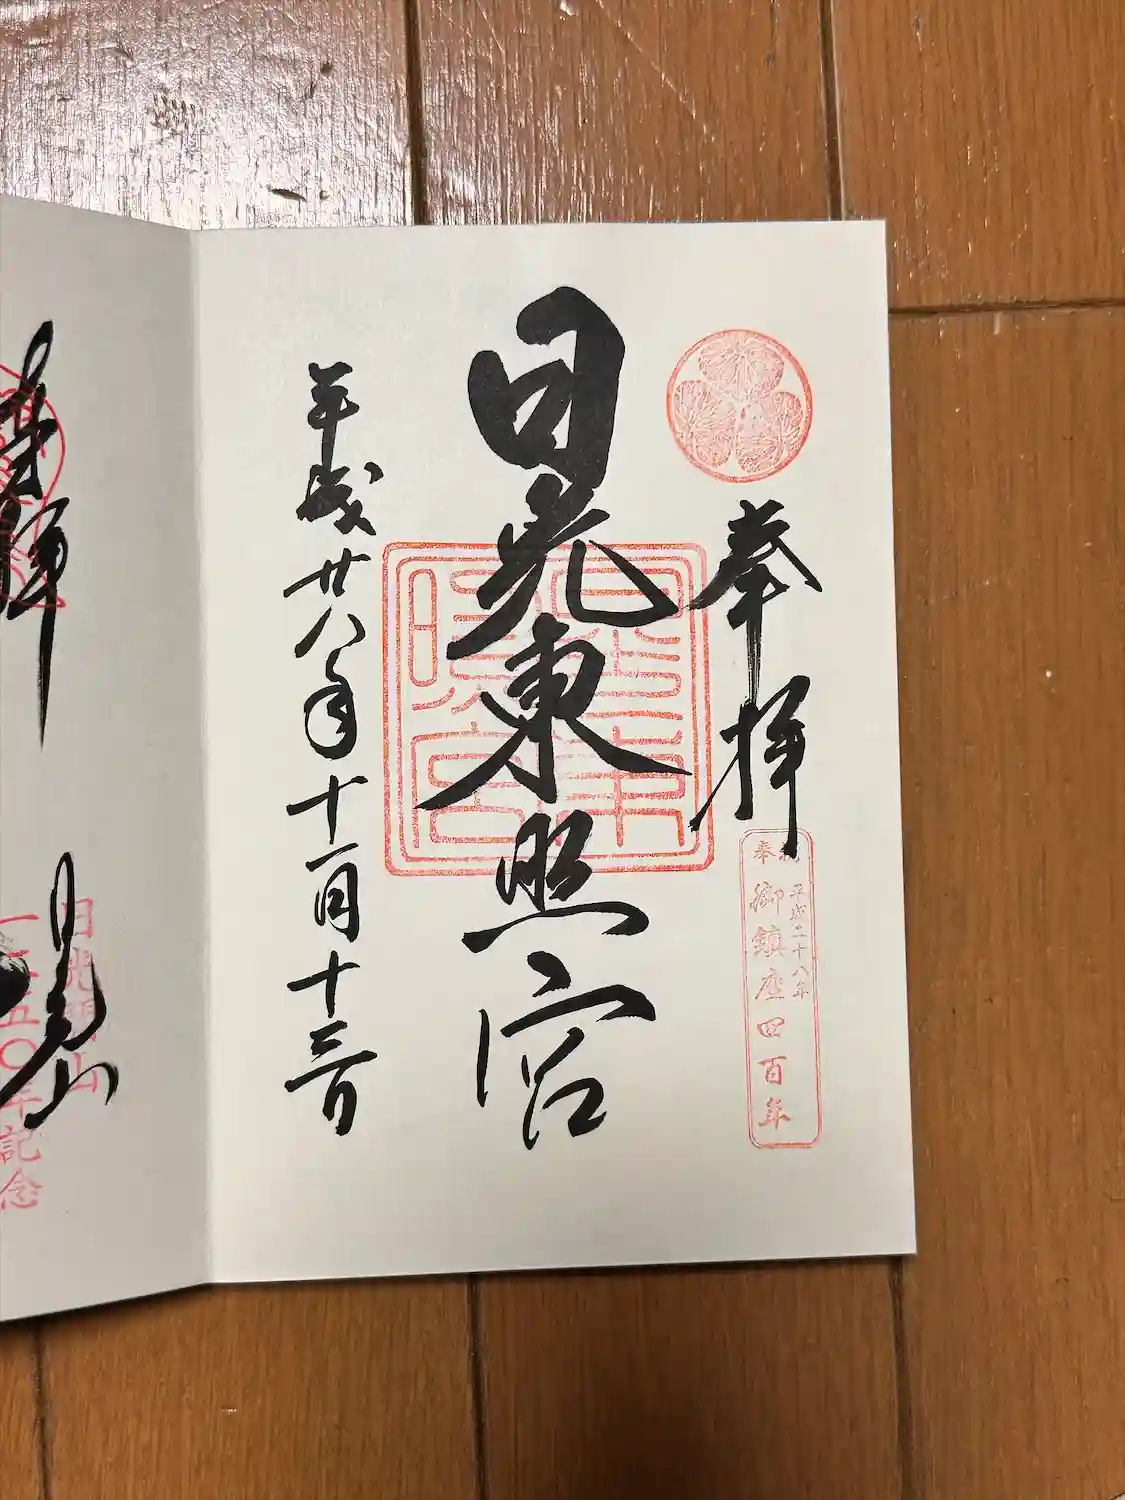 奉拝
奉祝
平成二十八年
御鎮座四百年
日光東照宮
平成廿八年十一月十三日
日光山
日光開山
一二五〇年記念